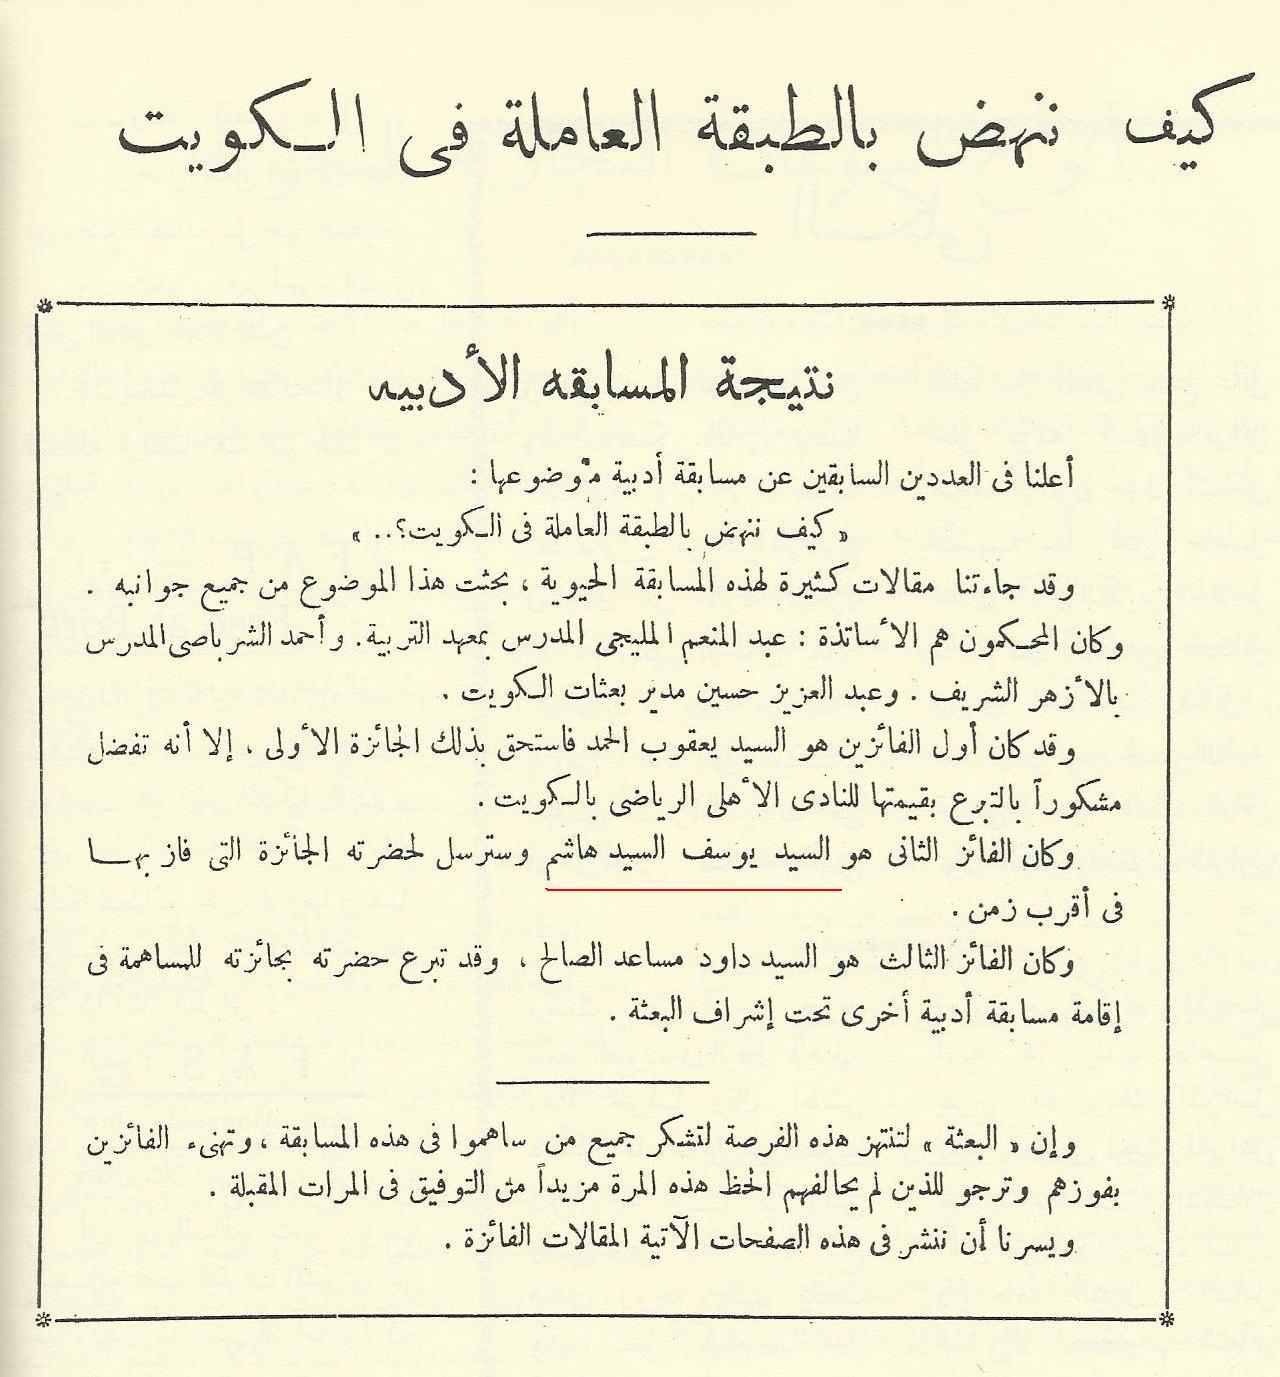 كيف ننهض بالطبقة العاملة فى الكويت
نتيجة المسابقه الأدبيه
أعلنا فى العددين السابقين عن مسابقة أدبية موضوعها :
« كيف ننهض بالطبقة العاملة فى الكويت؟.. »
وقد جاءتنا مقالات كثيرة لهذه المسابقة الحيوية ، بحثت هذا الموضوع من جميع جوانبه .
وكان المحكمون هم الأساتذة : عبد المنعم المليجى المدرس بمعهد التربية . وأحمد الشرباصى المدرس
بالأزهر الشريف . وعبد العزيز حسين مدير بعثات الكويت .
وقد كان أول الفائزين هو السيد يعقوب الحمد فاستحق بذلك الجائزة الأولى ، إلا أنه تفضل
مشكوراً بالتبرع بقيمتها للنادى الأهلى الرياضى بالكويت .
وكان الفائز الثانى هو السيد يوسف السيد هاشم وسترسل لحضرته الجائزة التى فاز بها
فى أقرب زمن .
وكان الفائز الثالث هو السيد داود مساعد الصالح ، وقد تبرع حضرته بجائزته للمساهمة فى
إقامة مسابقة أدبية أخرى تحت إشراف البعثة .
وإن « البعثة » لتنتهز هذه الفرصة لتشكر جميع من ساهموا فى هذه المسابقة ، وتهنىء الفائزين
بفوزهم وترجو للذين لم يحالفهم الحظ هذه المرة مزيداً من التوفيق فى المرات المقبلة .
ويسرنا أن ننشر فى هذه الصفحات الآتية المقالات الفائزة .